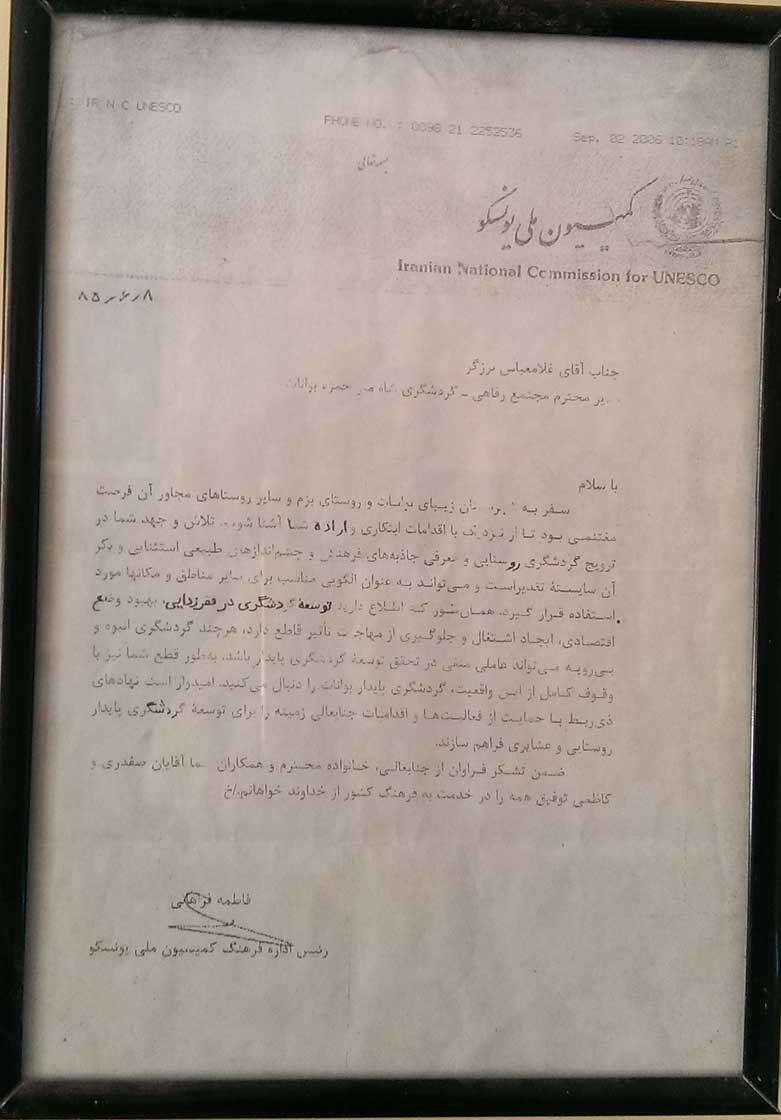 : IR N C UNESCO
PHONE NO. : 0098 21 2252536
Sep. 02 2006 10:18AM P1
بسمه‌تعالی
کمیسیون ملی یونسکو
Iranian National Commission for UNESCO
۸۵/۶/۸
جناب آقای غلامعباس برزگر
محترم مجتمع رفاهی - گردشگری شاه میر حمزه بوانات
با سلام
سفر به زیبای بوانات و روستای بزم و سایر روستاهای مجاور آن فرصت
مغتنمی بود تا از نزدیک با اقدامات ابتکاری و اراده شما آشنا شوم. تلاش و جهد شما در
ترویج گردشگری روستایی و معرفی جاذبه‌های فرهنگی و چشم‌اندازهای طبیعی استثنایی و بکر
آن شایستهٔ تقدیراست و می‌تواند به عنوان الگویی مناسب برای سایر مناطق و مکانها مورد
استفاده قرار گیرد. همان‌طور که اطلاع دارید توسعهٔ گردشگری در فقرزدایی، بهبود وضع
اقتصادی، ایجاد اشتغال و جلوگیری از مهاجرت تأثیر قاطع دارد، هرچند گردشگری انبوه و
بی‌رویه می‌تواند عاملی منفی در تحقق توسعهٔ گردشگری پایدار باشد. به‌طور قطع شما نیز با
وقوف کامل از این واقعیت، گردشگری پایدار بوانات را دنبال می‌کنید. امیدوار است نهادهای
ذی‌ربط با حمایت از فعالیت‌ها و اقدامات جنابعالی زمینه را برای توسعهٔ گردشگری پایدار
روستایی و عشایری فراهم سازند.
ضمن تشکر فراوان از جنابعالی، خانواده محترم و همکاران شما آقایان صفدری و
کاظمی توفیق همه را در خدمت به فرهنگ کشور از خداوند خواهانم./خ
فاطمه فراهانی
رئیس اداره فرهنگ کمیسیون ملی یونسکو